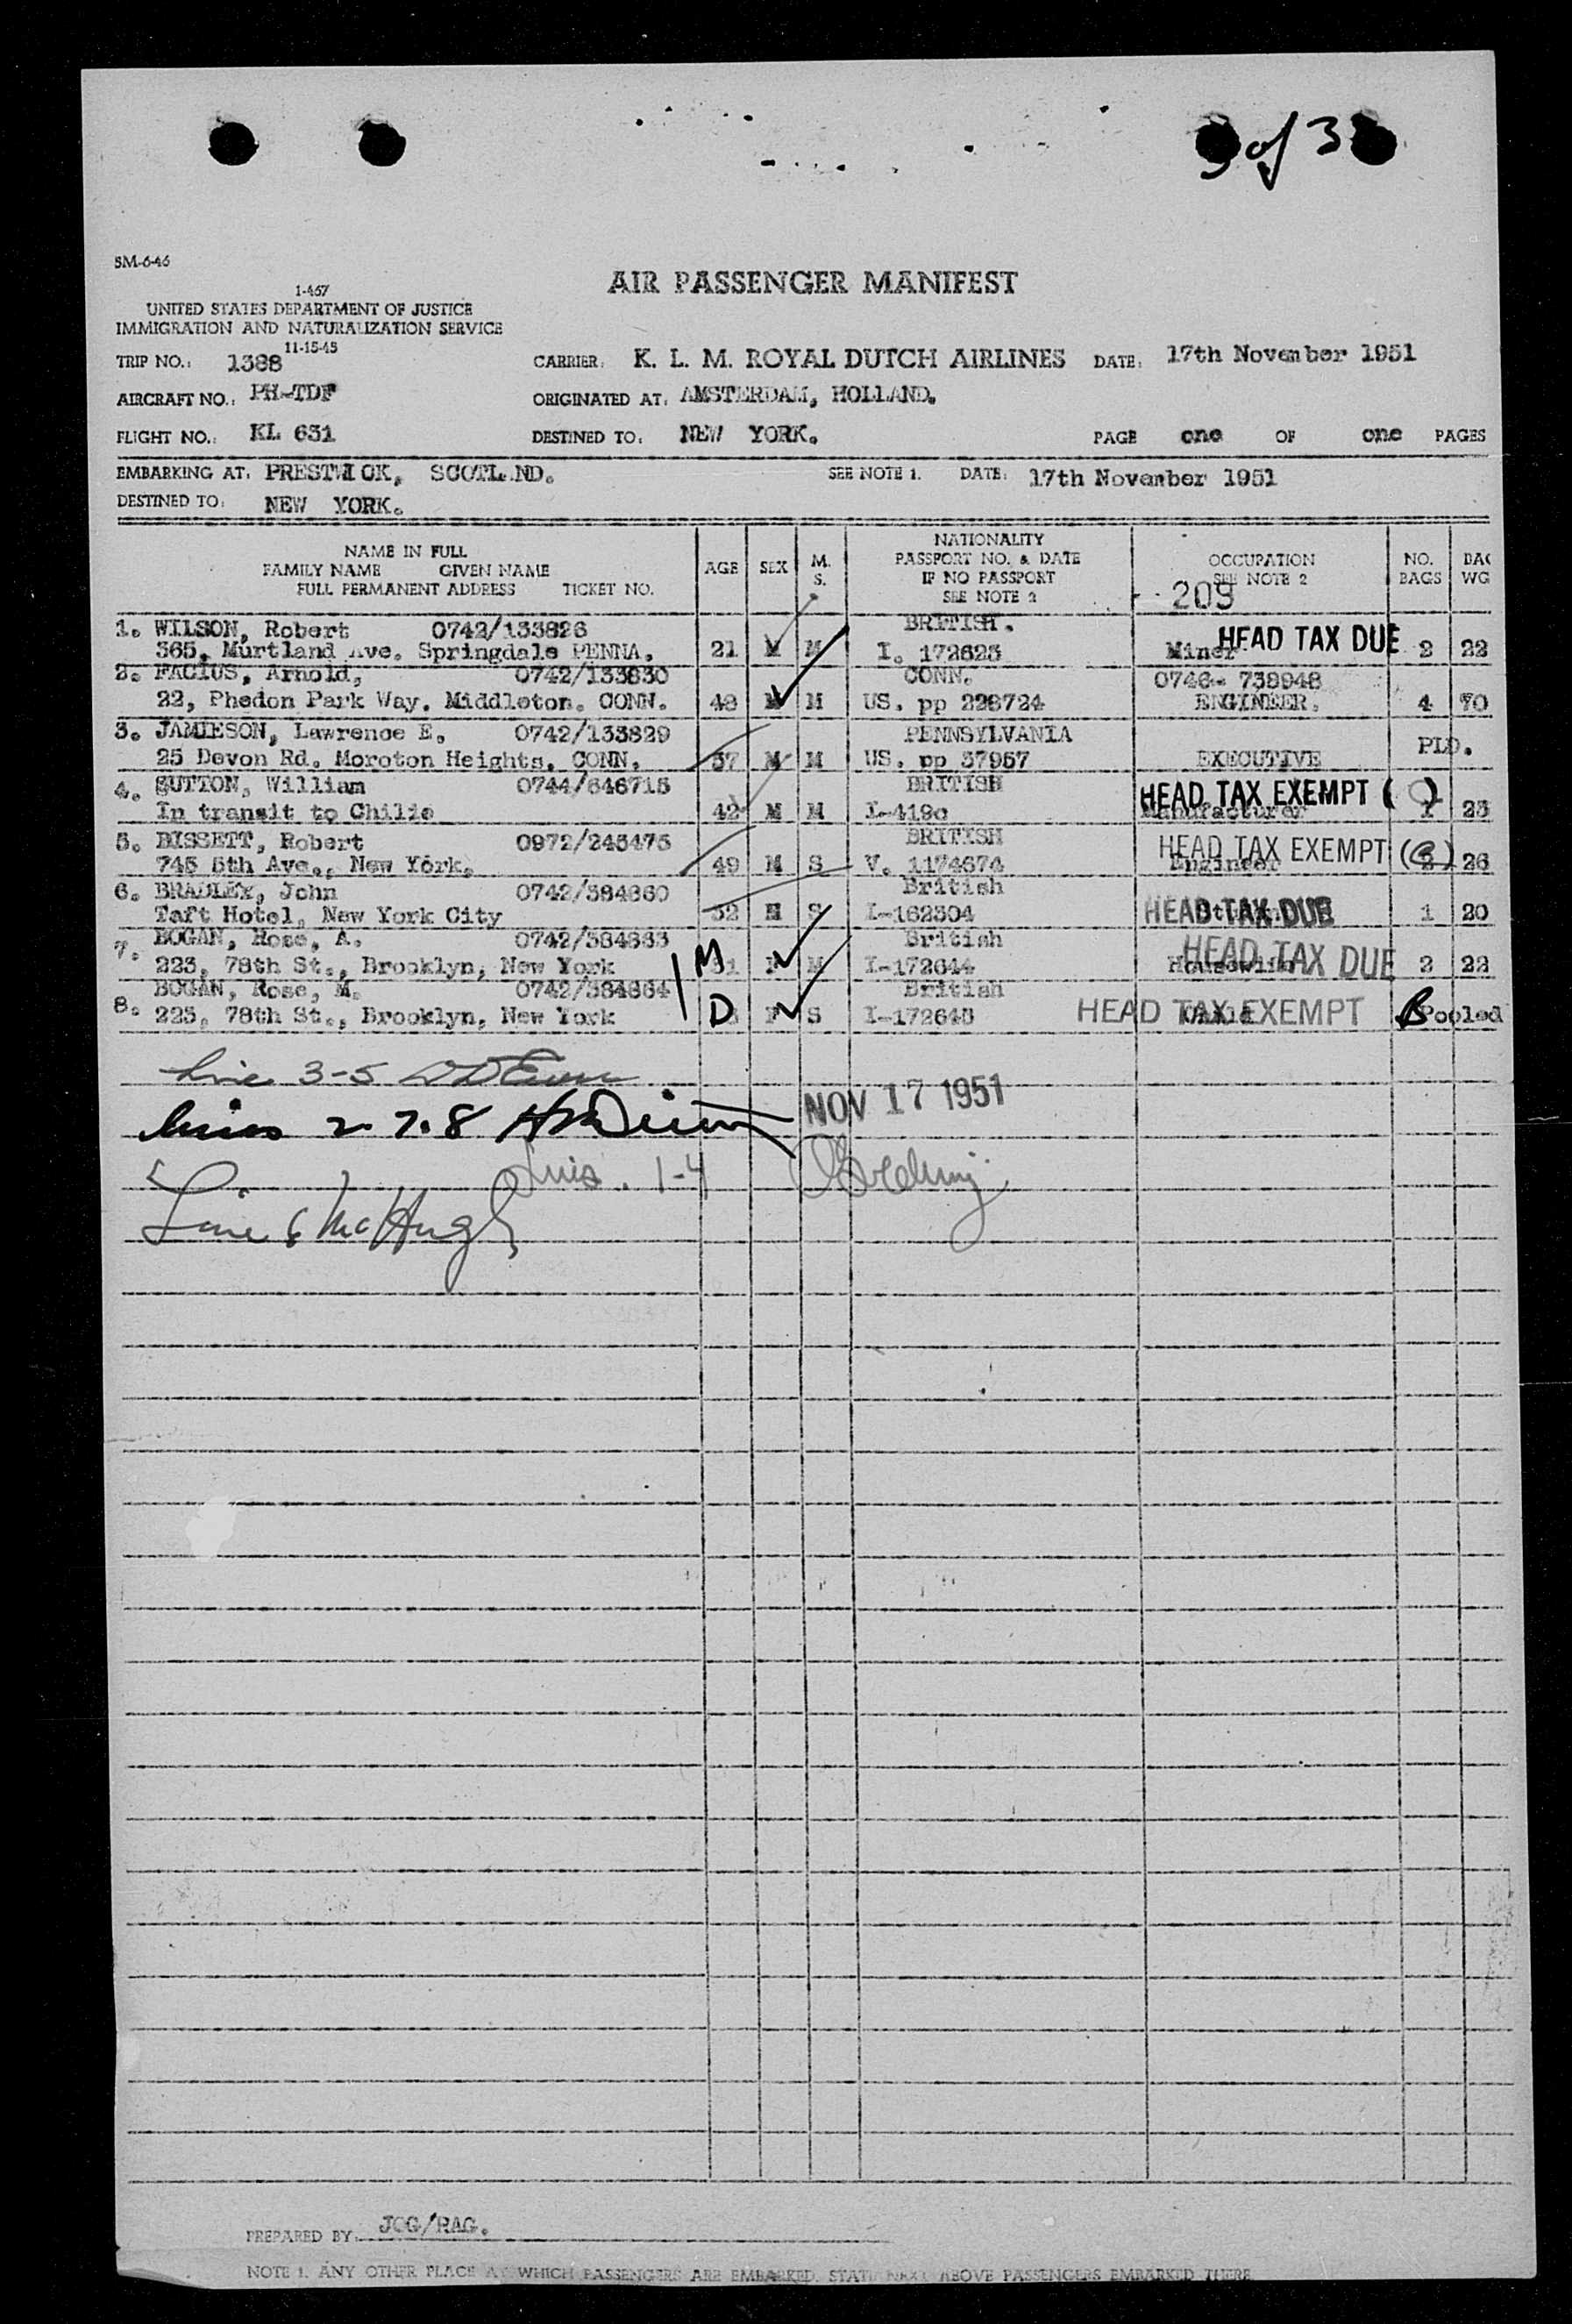 of 3
SM-6-46
AIR PASSENGER MANIFEST
1-467
UNITED STATES DEPARTMENT OF JUSTICE
IMMIGRATION AND NATURALIZATION SERVICE
11-15-45
TRIP NO.: 1388 CARRIER: K. L. M. ROYAL DUTCH AIRLINES DATE: 17th November 1951
AIRCRAFT NO.: PH-TDF ORIGINATED AT: AMSTERDAM, HOLLAND.
FLIGHT NO.: KL 631 DESTINED TO: NEW YORK. PAGE one OF one PAGES
EMBARKING AT: PRESTWICK, SCOTL.ND. SEE NOTE 1. DATE: 17th November 1951
DESTINED TO: NEW YORK.
NAME IN FULL
FAMILY NAME GIVEN NAME
FULL PERMANENT ADDRESS TICKET NO.
AGE SEX M. S.
NATIONALITY
PASSPORT NO. & DATE
IF NO PASSPORT
SEE NOTE 2
OCCUPATION
SEE NOTE 2
NO. BAGS
BAG WG
209
1. WILSON, Robert 0742/133826 BRITISH. HEAD TAX DUE
365, Murtland Ave. Springdale PENNA. 21 M M I. 172623 Miner 2 22
2. FACIUS, Arnold, 0742/133830 CONN. 0746- 738948
22, Phedon Park Way. Middleton. CONN. 48 M M US. pp 228724 ENGINEER. 4 70
3. JAMIESON, Lawrence E. 0742/133829 PENNSYLVANIA PLD.
25 Devon Rd. Moroton Heights. CONN. 37 M M US. pp 37957 EXECUTIVE
4. SUTTON, William 0744/646715 BRITISH HEAD TAX EXEMPT ( )
In transit to Chilie 42 M M I-419c Manufacturer 1 23
5. BISSETT, Robert 0972/245475 BRITISH HEAD TAX EXEMPT
745 5th Ave., New York. 49 M S V. 1174674 Engineer 26
6. BRADLEY, John 0742/384860 British
Taft Hotel, New York City 32 M S I-162304 HEAD TAX DUE 1 20
7. BOGAN, Rose, A. 0742/384883 British HEAD TAX DUE
223, 78th St., Brooklyn, New York M 31 F M I-172644 Housewife 2 22
8. BOGAN, Rose, M. 0742/384884 British
223, 78th St., Brooklyn, New York D F S I-172645 HEAD TAX EXEMPT Pooled
line 3-5
NOV 17 1951
lines 2. 7. 8
Lines. 1-4
Line 6 McHugh
PREPARED BY: JCG/RAG.
NOTE 1. ANY OTHER PLACE AT WHICH PASSENGERS ARE EMBARKED. STATE NEXT ABOVE PASSENGERS EMBARKED THERE